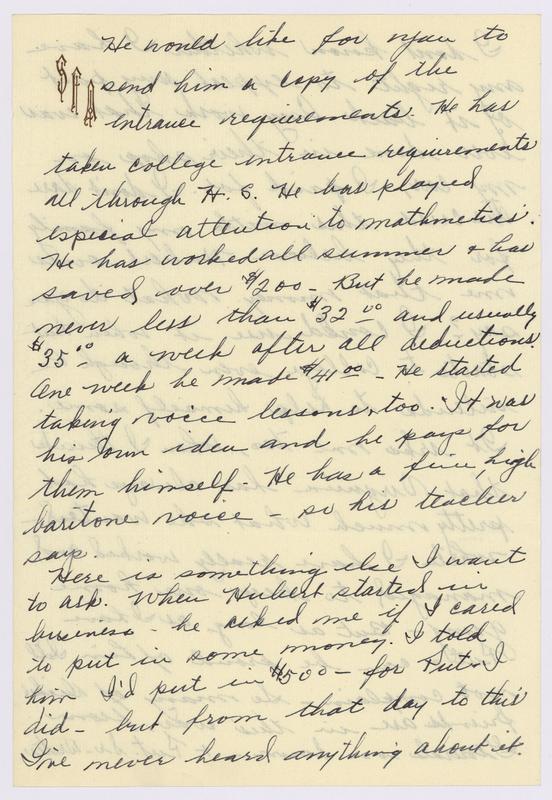 He would like for you to
SFA send him a copy of the
entrance requirements. He has
taken college entrance requirements
all through H. S. He has played
especial attention to mathmetics.
He has worked all summer & has
saved over $200 - But he made
never less than $32 00 and usually
$35 00 a week after all deductions.
One week he made $41 00 - He started
taking voice lessons, too. It was
his own idea and he pays for
them himself - He has a fine, high
baritone voice - so his teacher
says.
Here is something else I want
to ask. When Hubert started in
business - he asked me if I cared
to put in some money. I told
him I'd put in $500 - for I
did - but from that day to this
I've never heard anything about it.